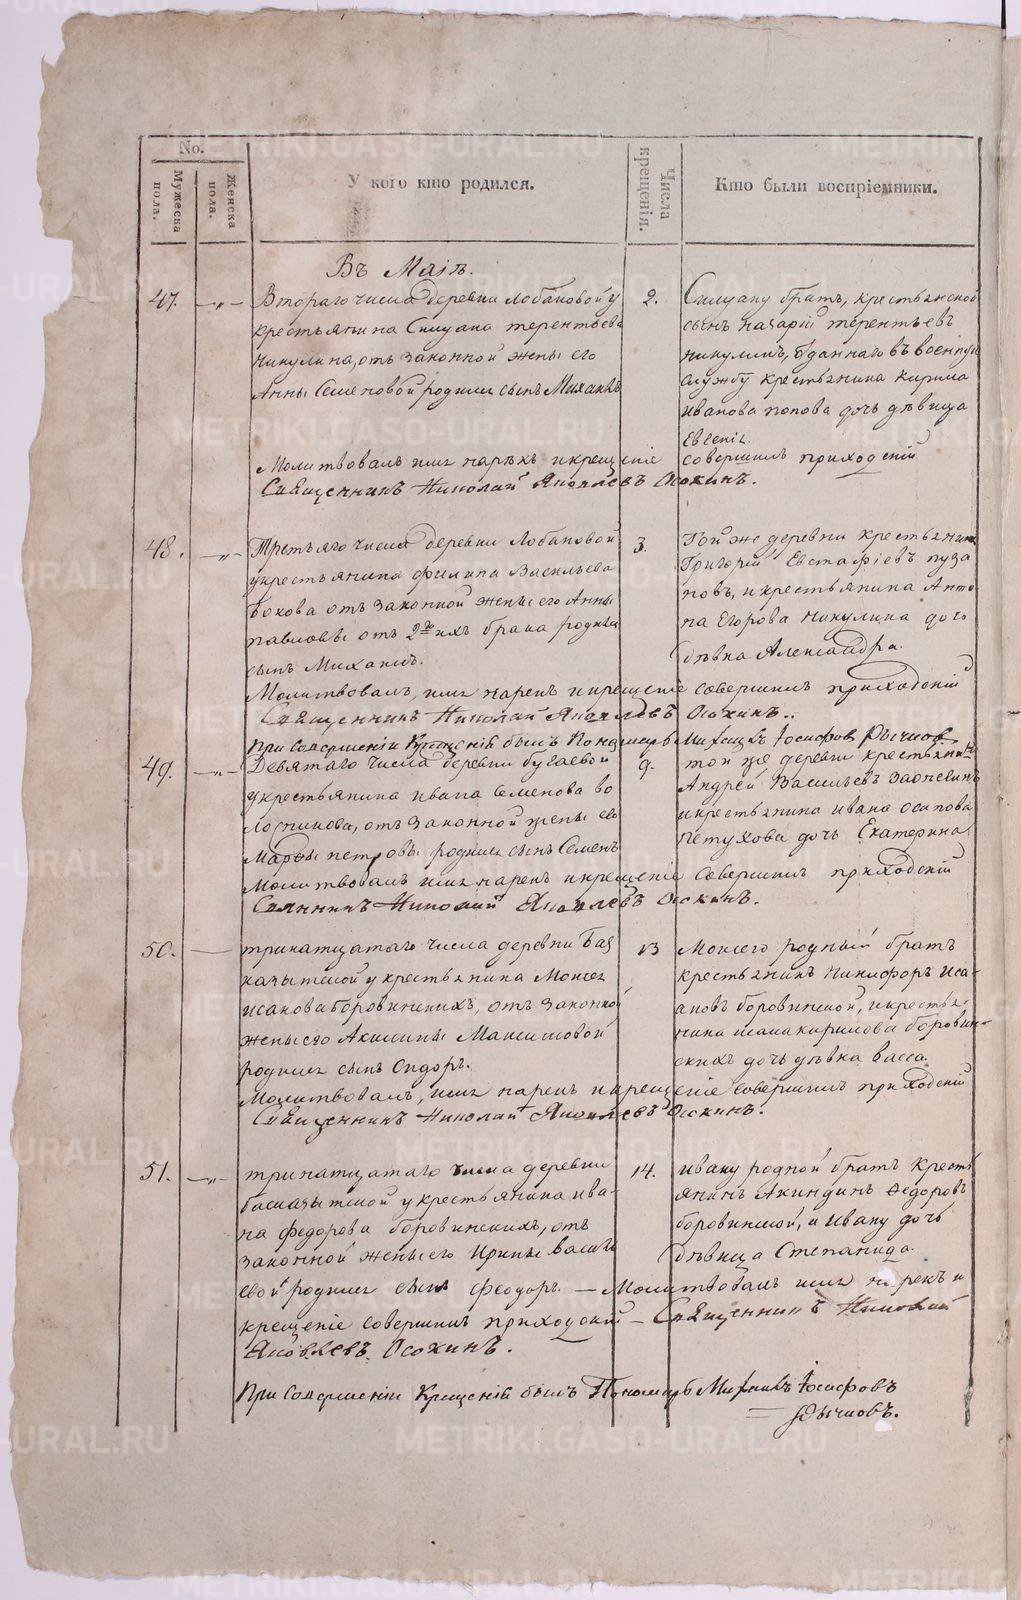 No.
Мужеска пола.
Женска пола.
У кого кто родился.
Числа крещенія.
Кто были воспріемники.
Въ Маіѣ.
47. —„— Втораго числа деревни Лобановой у
крестьянина Силуана терентьева
никулина, отъ законной жены его
Анны Семеновой родился сынъ Михаилъ
2.
Силуану братъ, крестьянской
сынъ назарій терентьевъ
никулинъ, отданнаго въ военную
службу крестьянина кирила
иванова попова дочь дѣвица
Евгенія.
Молитвовалъ имя нарѣкъ и крещеніе совершилъ приходскій
Священникъ Николай Яковлевъ Осокинъ.
48. —„— Третьяго числа деревни Лобановой
у крестьянина филипа Васильева
бокова отъ законной жены его Анны
павловы отъ 2го ихъ брака родился
сынъ Михаилъ.
3.
Той же деревни крестьянинъ
Григорій Евстафіевъ пуза
новъ, и крестьянина Анто
на Егорова никулина дочь
дѣвка Александра.
Молитвовалъ, имя нарекъ и крещеніе совершилъ приходскій
Священникъ Николай Яковлевъ Осокинъ..
При совершеніи Крещеній былъ Пономарь Михаилъ Іосифов Рычков.
49. —„— Девятаго числа деревни бугаевой
у крестьянина ивана семенова во
лосникова, отъ законной жены его
Марфы петровы родился сынъ Семенъ
9.
той же деревни крестьянинъ
Андрей Васильевъ
и крестьянина ивана осипова
петухова дочь Екатерина
Молитвовалъ имя нарекъ и крещеніе совершилъ приходскій
Сянникъ Николай Яковлевъ Осокинъ.
50. — тринатцатаго числа деревни Бас
казыкской у крестьянина Моисея
исакова боровинскихъ, отъ законной
жены его Акилины Максимовой
родился сынъ Сидоръ.
13
Моисею родный братъ
крестьянинъ Никифоръ Иса-
аковъ боровинской, и крестья-
нина кирилова боровин-
скихъ дочь дѣвка васса.
Молитвовалъ, имя нарекъ и крещеніе совершилъ приходскій
Священникъ Николай Яковлевъ Осокинъ.
51. —„— тринатцатаго числа деревни
баской у крестьянина ива-
на федорова боровинскихъ, отъ
законной жены его Ирины василь
евой родился сынъ феодоръ. — Молитвовалъ имя нарекъ и
14.
ивану родной братъ крестъ
янинъ Акиндинъ федоровъ
боровинской, и ивану дочь
дѣвица Степанида.
крещеніе совершилъ приходскій — Священникъ Николай
Яковлевъ Осокинъ.
При совершеніи Крещеній былъ Пономарь Михаилъ Іосифовъ
Рычковъ.
METRIKI.GASO-URAL.RU